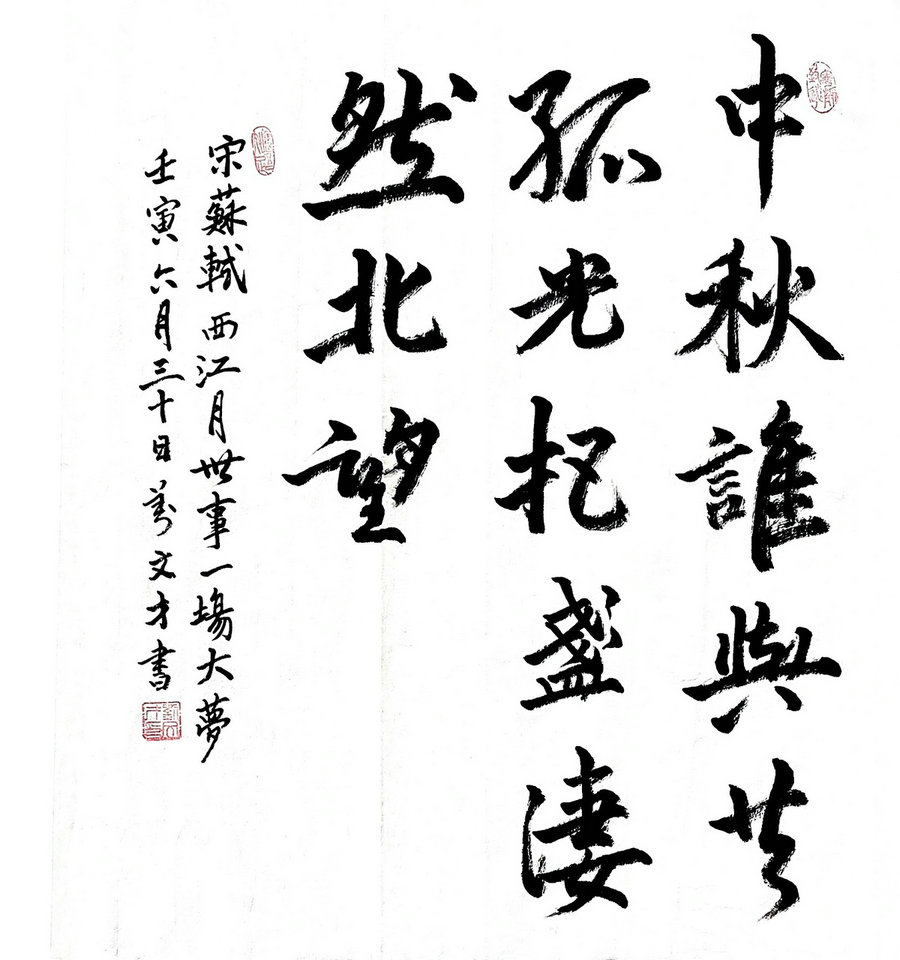 中秋誰與共
孤光把盞淒
然北望
宋蘇軾西江月世事一場大夢
壬寅六月三十日萬文才書